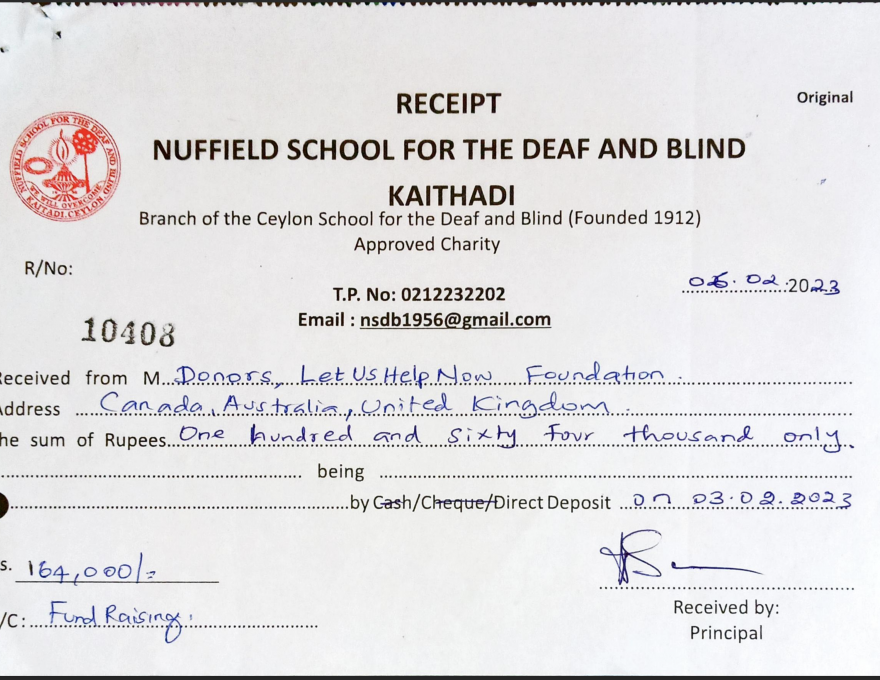 Original
RECEIPT
NUFFIELD SCHOOL FOR THE DEAF AND BLIND
KAITHADI
NUFFIELD SCHOOL FOR THE DEAF AND BLIND
WE WILL OVERCOME
KAITADI.CEYLON
Branch of the Ceylon School for the Deaf and Blind (Founded 1912)
Approved Charity
R/No:
.02.2023
T.P. No: 0212232202
Email : nsdb1956@gmail.com
10408
eceived from M Donors, Let Us Help Now Foundation.
ddress Canada, Australia, United Kingdom.
he sum of Rupees One hundred and sixty four thousand only.
being
by Cash/Cheque/Direct Deposit on 03.02.2023
s. 164,000/=
/C: Fund Raising.
Received by:
Principal